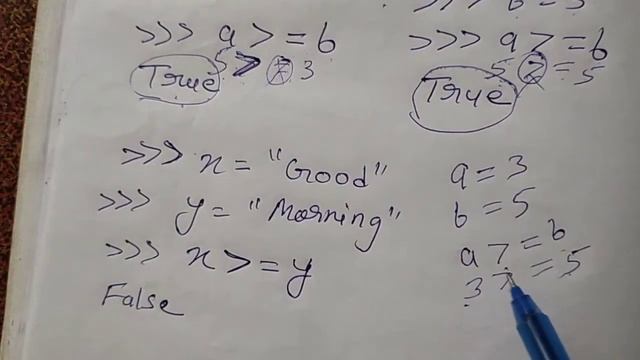 >>> b = 5
>>> a >= b
5 >= 3
True
>>> a >= b
5 >= 5
True
>>> x = "Good"
>>> y = "Morning"
>>> x >= y
False
a = 3
b = 5
a >= b
3 >= 5